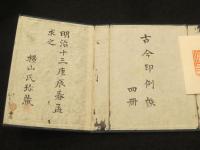 古今印例帖
四冊
明治十三庚辰春孟
求之
楊山氏珍藏